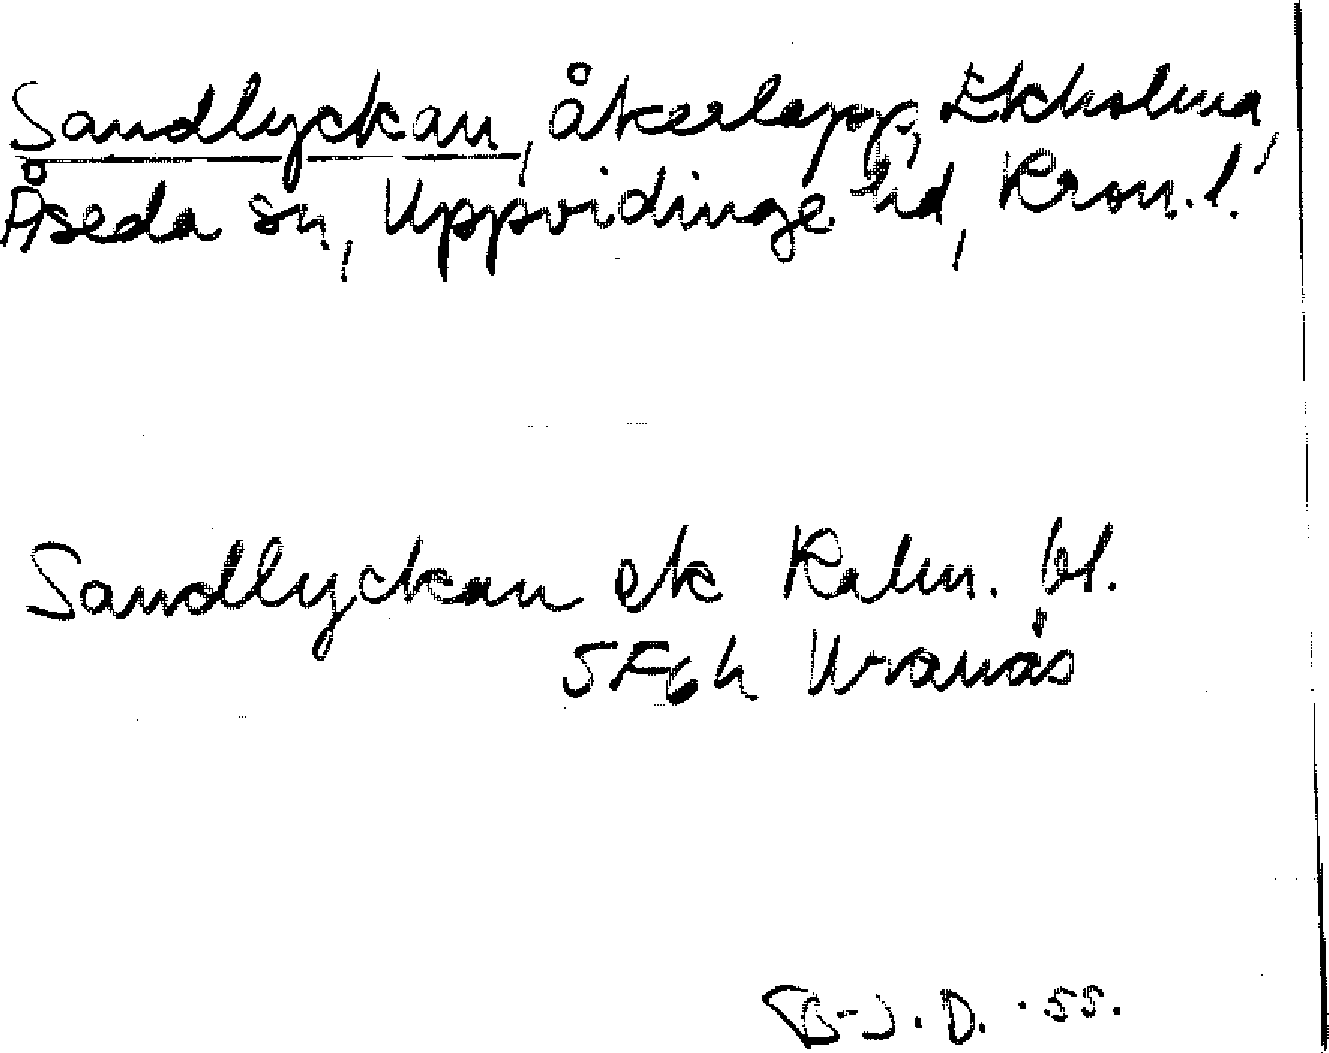 Sandlyckan, åkerlapp, Ekholma,
Åseda sn, Uppvidinge hd, Kron. l.
Sandlyckan ek Kalm. bl.
5F6h Uranäs
B-J. D. · 55.